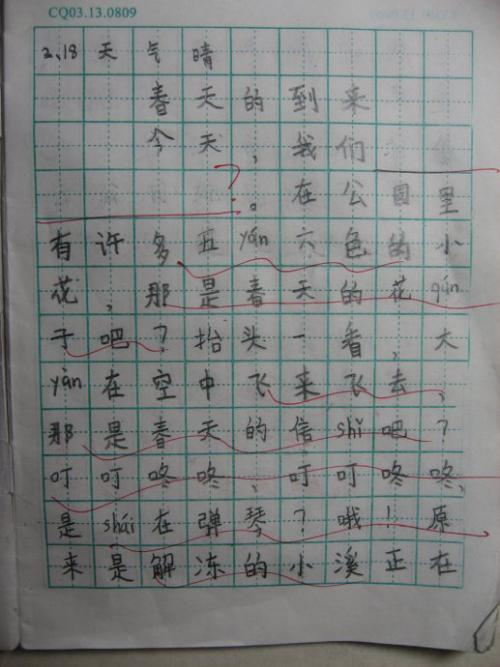 CQ03.13.0809
2、18天气晴
春天的到来
今天，我们
？。在公园里
有许多五yán六色的小
花，那是春天的花qún
子吧？抬头一看，大
yàn在空中飞来飞去，
那是春天的信shǐ吧？
叮叮咚咚、叮叮咚咚、
是shéi在弹琴？哦！原
来是解冻的小溪正在